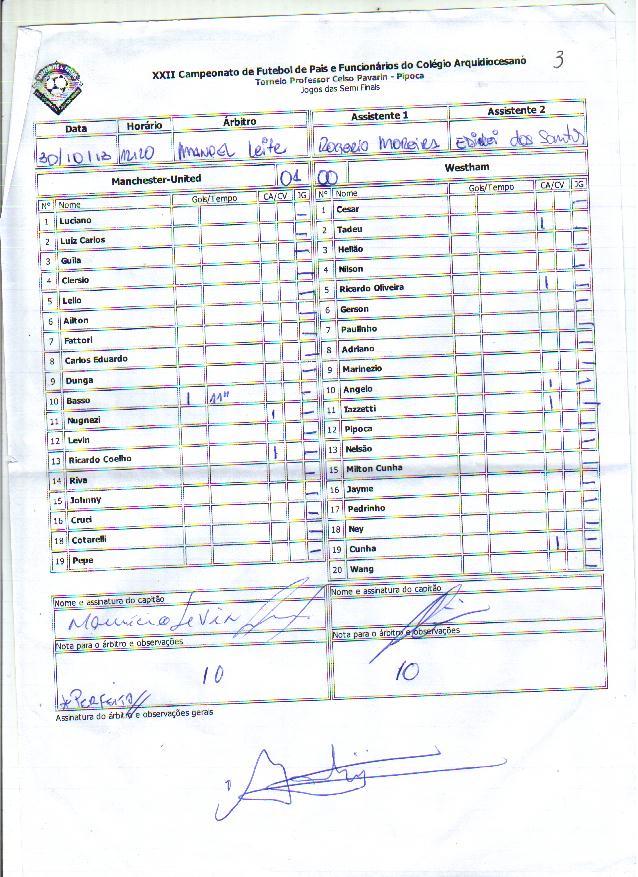 3
XXII Campeonato de Futebol de Pais e Funcionários do Colégio Arquidiocesano
Torneio Professor Celso Pavarin - Pipoca
Jogos das Semi Finais
Data Horário Árbitro Assistente 1 Assistente 2
30/10/13 12:20 MANOEL Leite ROGERIO MOREIRA dos Santos
Manchester-United 01 00 Westham
Nº Nome Gols/Tempo CA/CV JG Nº Nome Gols/Tempo CA/CV JG
1 Luciano 1 Cesar
2 Luiz Carlos 2 Tadeu
3 Guila 3 Hellão
4 Clersio 4 Nilson
5 Lello 5 Ricardo Oliveira
6 Ailton 6 Gerson
7 Fattori 7 Paulinho
8 Carlos Eduardo 8 Adriano
9 Dunga 9 Marinezio
10 Basso 1 11" 10 Angelo
11 Nugnezi 11 Iazzetti
12 Levin 12 Pipoca
13 Ricardo Coelho 13 Nelsão
14 Riva 15 Milton Cunha
15 Johnny 16 Jayme
16 Cruci 17 Pedrinho
18 Cotarelli 18 Ney
19 Pepe 19 Cunha
20 Wang
Nome e assinatura do capitão Nome e assinatura do capitão
Mauricio Levin
Nota para o árbitro e observações Nota para o árbitro e observações
10 10
*PERFEITO//
Assinatura do árbitro e observações gerais